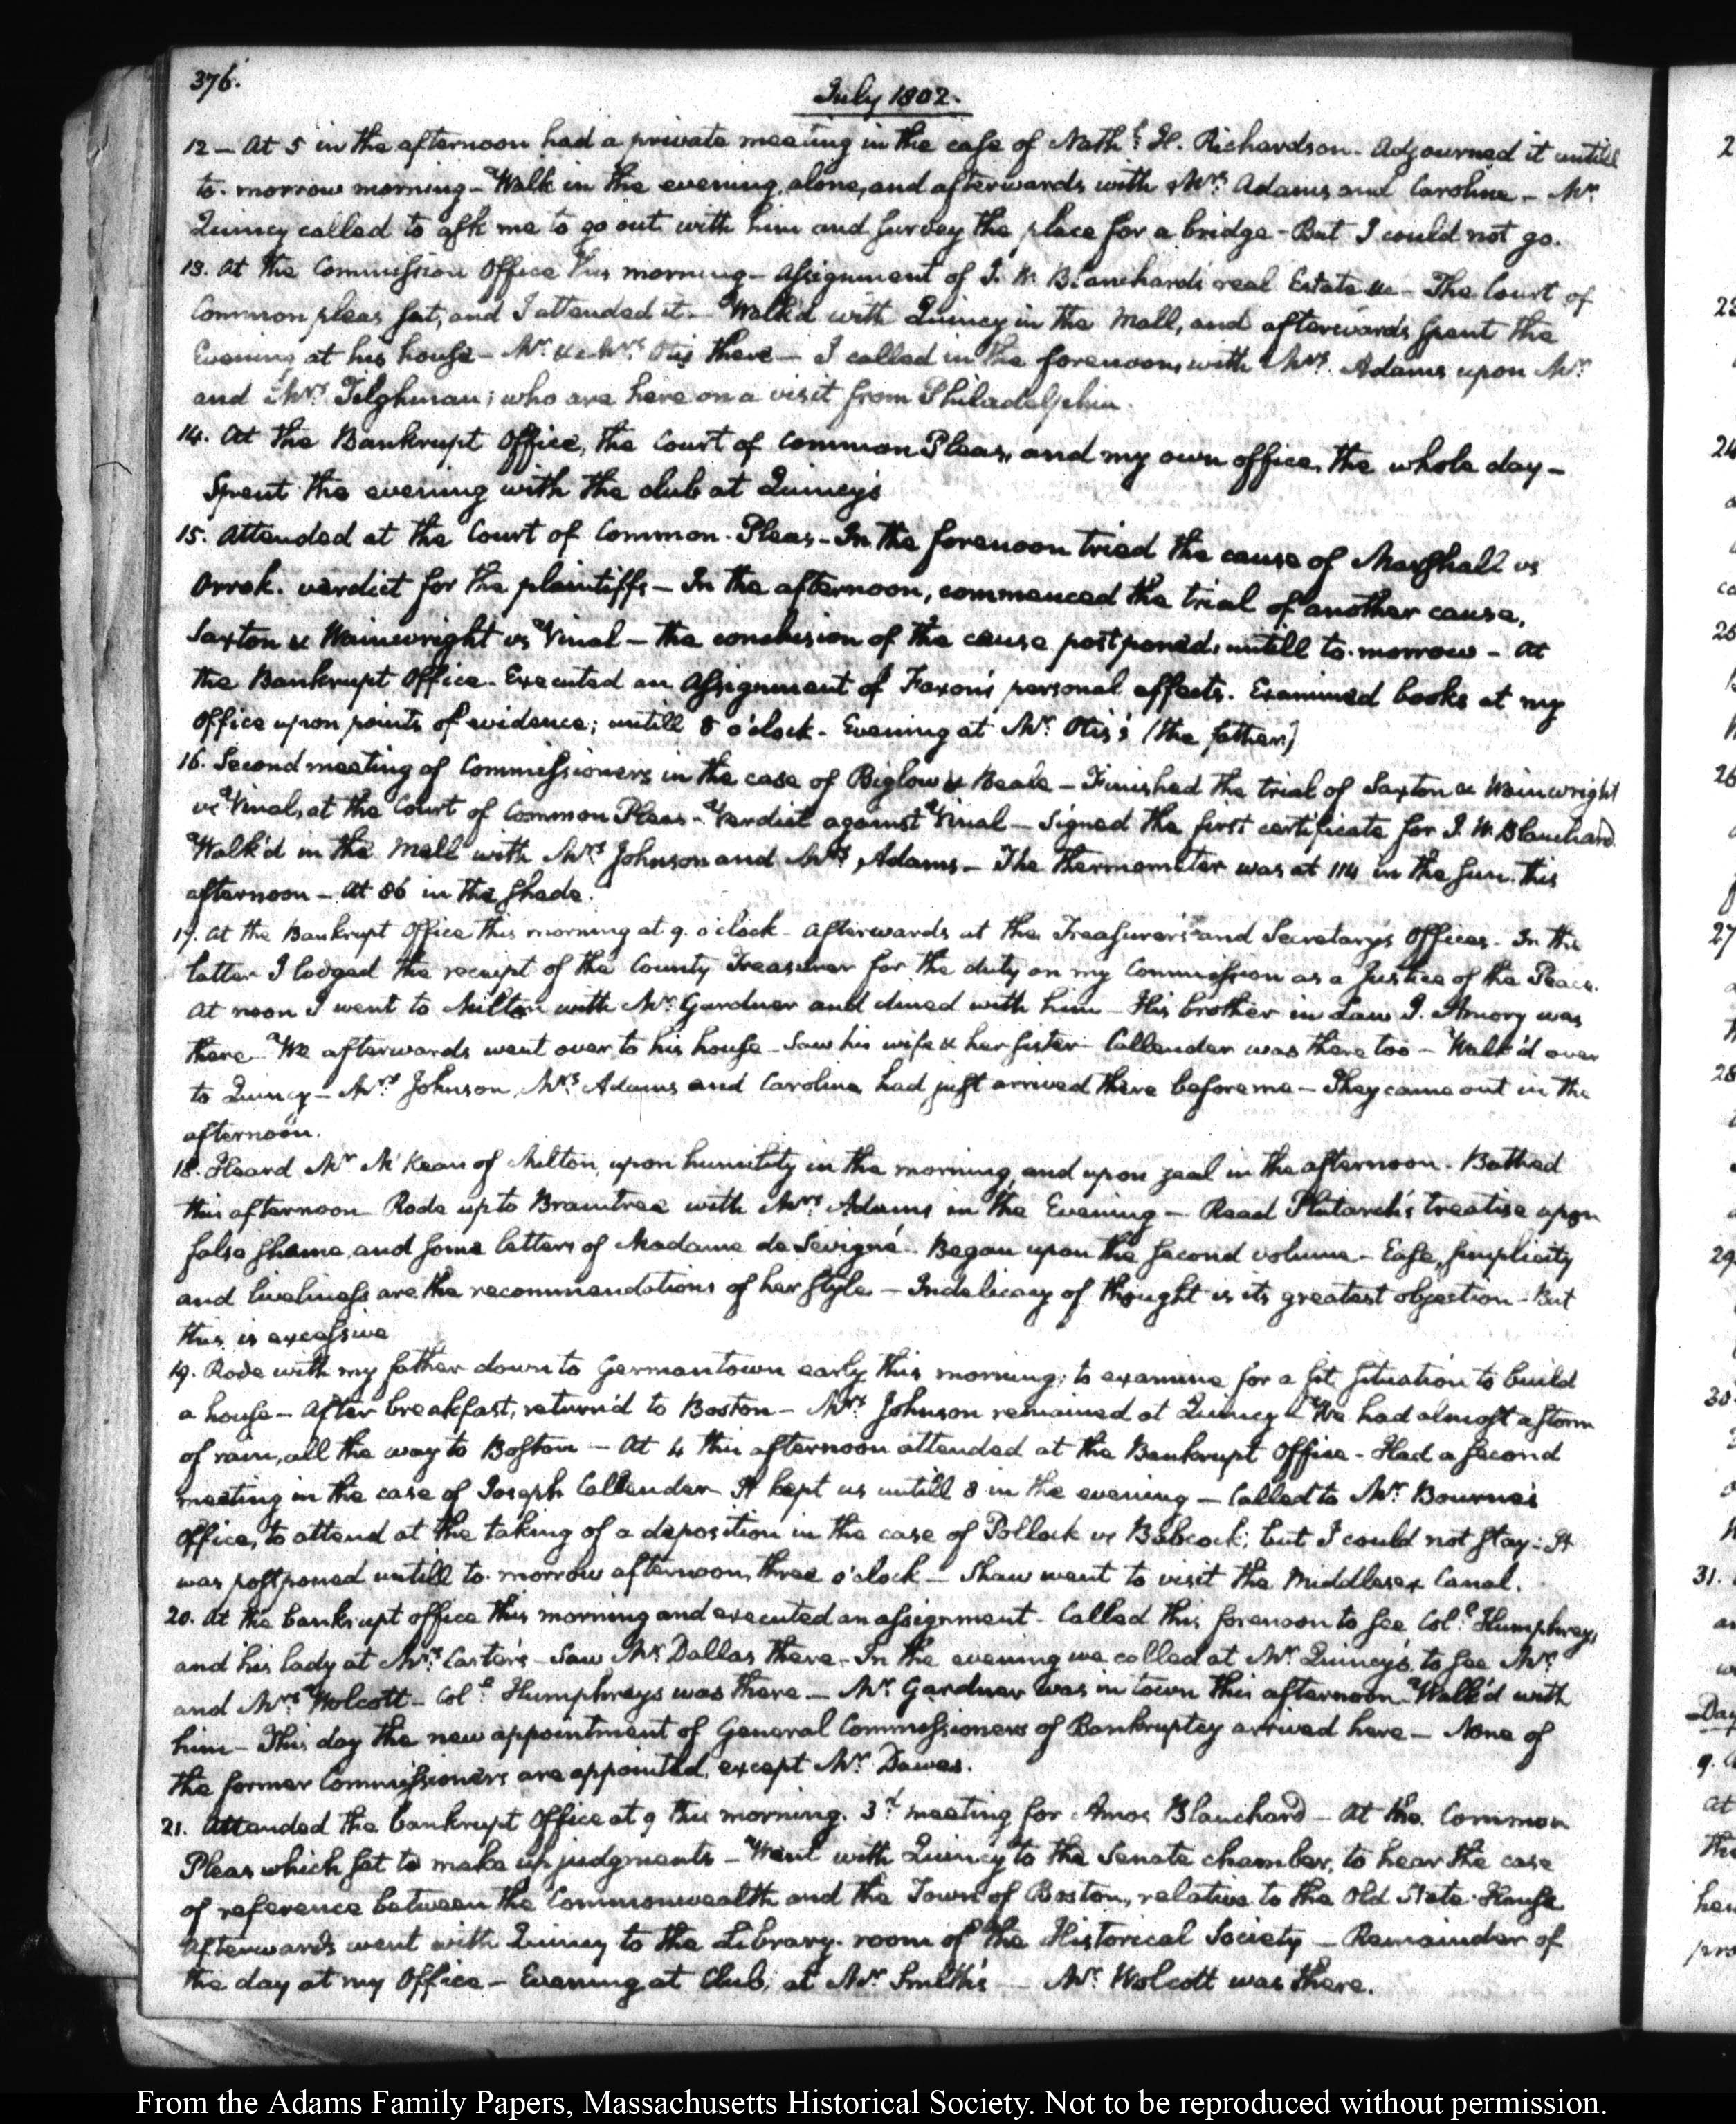 376.
July 1802.
12 – At 5 in the afternoon had a private meeting in the case of Nathl. H. Richardson. Adjourned it untill
to-morrow morning – Walk in the evening, alone, and afterwards with Mrs. Adams and Caroline – Mr.
Quincy called to ask me to go out with him and survey the place for a bridge – But I could not go.
13. At the Commission Office this morning – Assignment of J. W. Blanchard's real Estate &c – The Court of
Common pleas sat, and I attended it – Walk'd with Quincy in the Mall, and afterwards spent the
Evening at his house – Mr. & Mrs. Otis there – I called in the forenoon with Mrs. Adams upon Mr.
and Mrs. Tilghman; who are here on a visit from Philadelphia.
14. At the Bankrupt Office, the Court of Common Pleas, and my own office, the whole day –
Spent the evening with the club at Quincy's
15. Attended at the Court of Common-Pleas – In the forenoon tried the cause of Marshall vs
Orrok. verdict for the plaintiffs – In the afternoon, commenced the trial of another cause,
Saxton & Wainwright vs Vinal – the conclusion of the cause postponed, untill to-morrow – At
the Bankrupt Office – Executed an Assignment of Faxon's personal effects. Examined books at my
Office upon points of evidence; untill 8 o'clock – Evening at Mr. Otis's (the father)
16. Second meeting of Commissioners in the case of Biglow & Beale – Finished the trial of Saxton & Wainwright
vs Vinal, at the Court of Common Pleas – Verdict against Vinal – Signed the first certificate for J. W. Blanchard.
Walk'd in the Mall with Mrs. Johnson and Mrs. Adams – The thermometer was at 114 in the sun this
afternoon – At 86 in the shade.
17. At the Bankrupt Office this morning at 9. o'clock – Afterwards at the Treasurer's and Secretary's Offices – In the
latter I lodged the receipt of the County Treasurer for the duty on my Commission as a Justice of the Peace.
At noon I went to Milton with Mr. Gardner and dined with him – His brother in Law J. Amory was
there – We afterwards went over to his house – Saw his wife & her sister – Callender was there too – Walk'd over
to Quincy – Mrs. Johnson, Mrs. Adams and Caroline had just arrived there before me – They came out in the
afternoon.
18. Heard Mr. McKean of Milton, upon humility in the morning, and upon zeal in the afternoon. Bathed
this afternoon – Rode up to Braintree with Mrs. Adams in the Evening – Read Plutarch's treatise upon
false shame, and some letters of Madame de Sevigné – Began upon the second volume – Ease, simplicity
and liveliness are the recommendations of her style – Indelicacy of thought is its greatest objection – But
this is excessive
19. Rode with my father down to Germantown early this morning; to examine for a fit situation to build
a house – After breakfast, return'd to Boston – Mrs. Johnson remained at Quincy – We had almost a storm
of rain, all the way to Boston – At 4 this afternoon attended at the Bankrupt Office – Had a second
meeting in the case of Joseph Callender – It kept us untill 8 in the evening – Called to Mr. Bourne's
Office, to attend at the taking of a deposition in the case of Pollock vs Babcock; but I could not stay: It
was postponed untill to-morrow afternoon, three o'clock – Shaw went to visit the Middlesex Canal.
20. At the bankrupt office this morning and executed an assignment. Called this forenoon to see Coll. Humphreys
and his lady at Mrs. Carter's – Saw Mr. Dallas there – In the evening we called at Mr. Quincy's to see Mr.
and Mrs. Wolcott – Coll. Humphreys was there – Mr. Gardner was in town this afternoon – Walk'd with
him – This day the new appointment of General Commissioners of Bankruptcy arrived here – None of
the former Commissioners are appointed, except Mr. Dawes.
21. Attended the bankrupt Office at 9 this morning. 3d. meeting for Amos Blanchard – At the Common
Pleas which sat to make up judgments – Went with Quincy to the Senate chamber, to hear the case
of reference between the Commonwealth and the Town of Boston, relative to the Old State-House
Afterwards went with Quincy to the Library-room of the Historical Society – Remainder of
the day at my Office – Evening at Club, at Mr. Smith's – Mr. Wolcott was there.
From the Adams Family Papers, Massachusetts Historical Society. Not to be reproduced without permission.